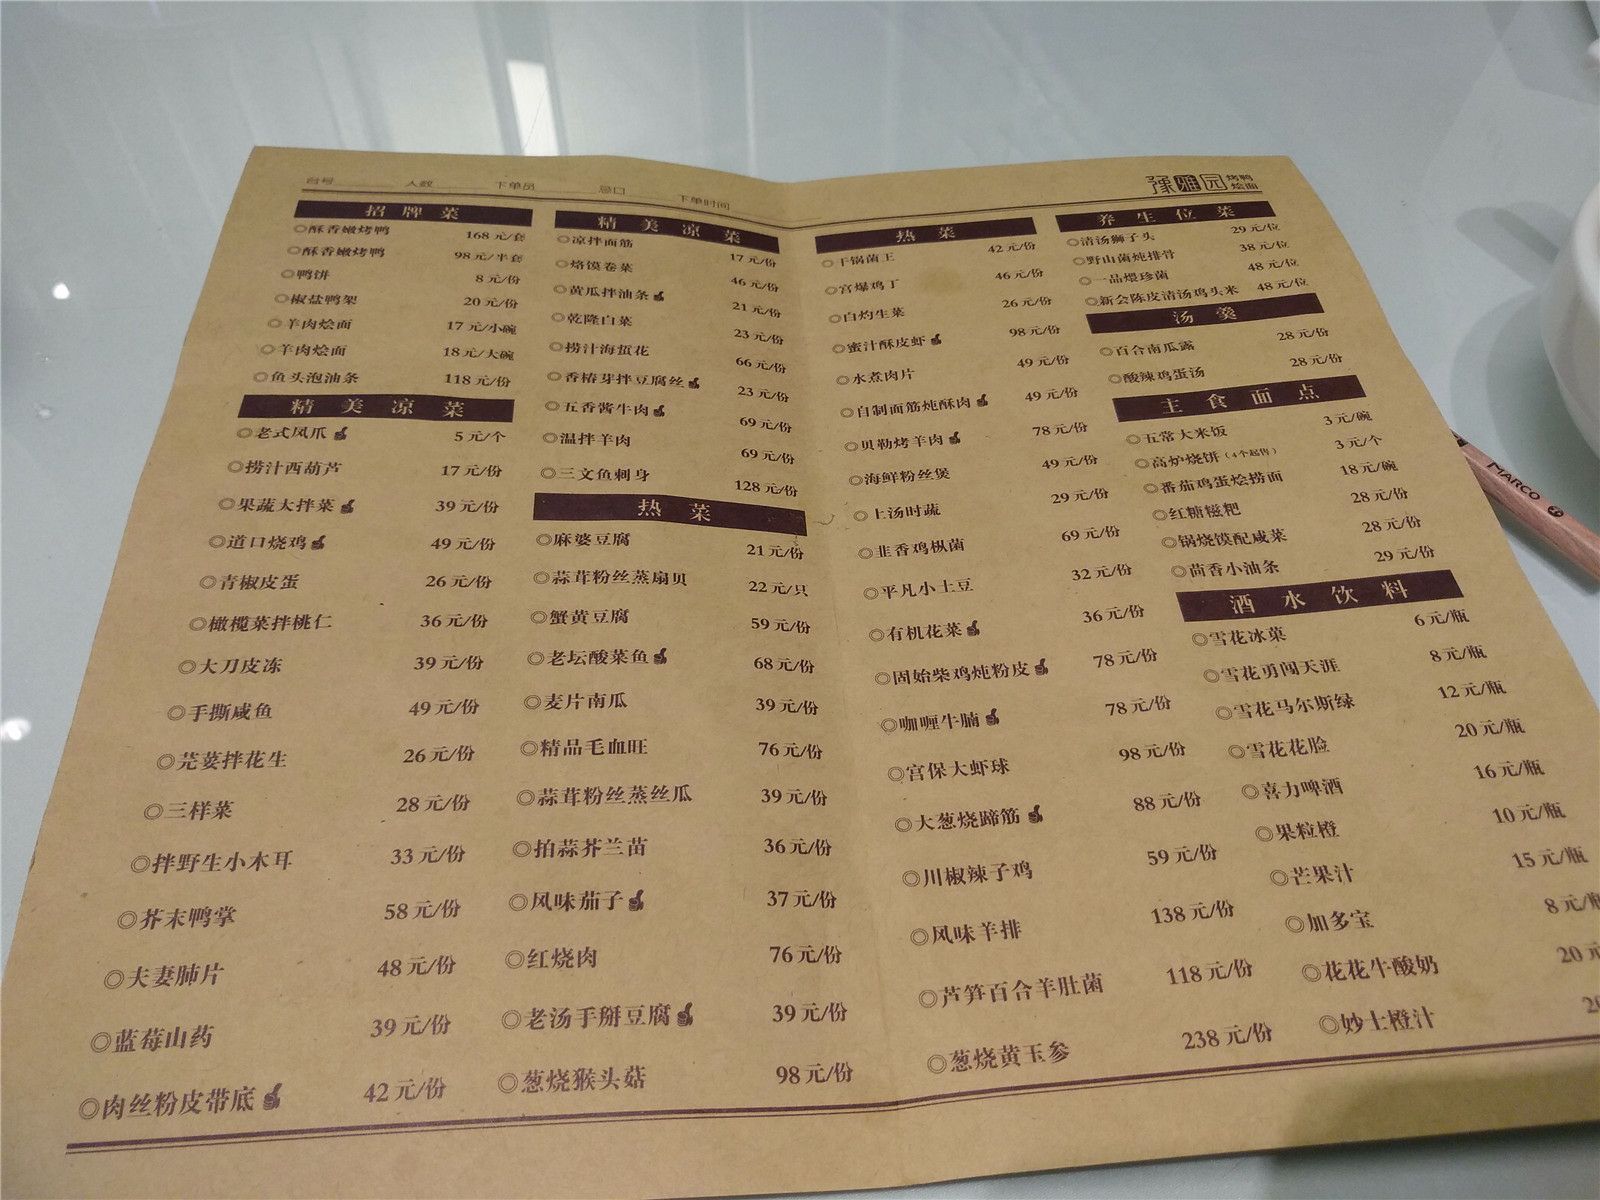 台号 人数 下单员 忌口 下单时间
豫雅园 烤鸭 烩面
招牌菜
◎酥香嫩烤鸭 168元/套
◎酥香嫩烤鸭 98元/半套
◎鸭饼 8元/份
◎椒盐鸭架 20元/份
◎羊肉烩面 17元/小碗
◎羊肉烩面 18元/大碗
◎鱼头泡油条 118元/份
精美凉菜
◎老式凤爪 5元/个
◎捞汁西葫芦 17元/份
◎果蔬大拌菜 39元/份
◎道口烧鸡 49元/份
◎青椒皮蛋 26元/份
◎橄榄菜拌桃仁 36元/份
◎大刀皮冻 39元/份
◎手撕咸鱼 49元/份
◎芫荽拌花生 26元/份
◎三样菜 28元/份
◎拌野生小木耳 33元/份
◎芥末鸭掌 58元/份
◎夫妻肺片 48元/份
◎蓝莓山药 39元/份
◎肉丝粉皮带底 42元/份
精美凉菜
◎凉拌面筋 17元/份
◎烙馍卷菜 46元/份
◎黄瓜拌油条 21元/份
◎乾隆白菜 23元/份
◎捞汁海蜇花 66元/份
◎香椿芽拌豆腐丝 23元/份
◎五香酱牛肉 69元/份
◎温拌羊肉 69元/份
◎三文鱼刺身 128元/份
热菜
◎麻婆豆腐 21元/份
◎蒜茸粉丝蒸扇贝 22元/只
◎蟹黄豆腐 59元/份
◎老坛酸菜鱼 68元/份
◎麦片南瓜 39元/份
◎精品毛血旺 76元/份
◎蒜茸粉丝蒸丝瓜 39元/份
◎拍蒜芥兰苗 36元/份
◎风味茄子 37元/份
◎红烧肉 76元/份
◎老汤手掰豆腐 39元/份
◎葱烧猴头菇 98元/份
热菜
◎干锅菌王 42元/份
◎宫爆鸡丁 46元/份
◎白灼生菜 26元/份
◎蜜汁酥皮虾 98元/份
◎水煮肉片 49元/份
◎自制面筋炖酥肉 49元/份
◎贝勒烤羊肉 78元/份
◎海鲜粉丝煲 49元/份
◎上汤时蔬 29元/份
◎韭香鸡枞菌 69元/份
◎平凡小土豆 32元/份
◎有机花菜 36元/份
◎固始柴鸡炖粉皮 78元/份
◎咖喱牛腩 78元/份
◎宫保大虾球 98元/份
◎大葱烧蹄筋 88元/份
◎川椒辣子鸡 59元/份
◎风味羊排 138元/份
◎芦笋百合羊肚菌 118元/份
◎葱烧黄玉参 238元/份
养生位菜
◎清汤狮子头 29元/位
◎野山菌炖排骨 38元/位
◎一品煨珍菌 48元/位
◎新会陈皮清汤鸡头米 48元/位
汤羹
◎百合南瓜露 28元/份
◎酸辣鸡蛋汤 28元/份
主食面点
◎五常大米饭 3元/碗
◎高炉烧饼（4个起售） 3元/个
◎番茄鸡蛋烩捞面 18元/碗
◎红糖糍粑 28元/份
◎锅烧馍配咸菜 28元/份
◎茴香小油条 29元/份
酒水饮料
◎雪花冰菓 6元/瓶
◎雪花勇闯天涯 8元/瓶
◎雪花马尔斯绿 12元/瓶
◎雪花花脸 20元/瓶
◎喜力啤酒 16元/瓶
◎果粒橙 10元/瓶
◎芒果汁 15元/瓶
◎加多宝 8元/瓶
◎花花牛酸奶 20元
◎妙士橙汁
MARCO